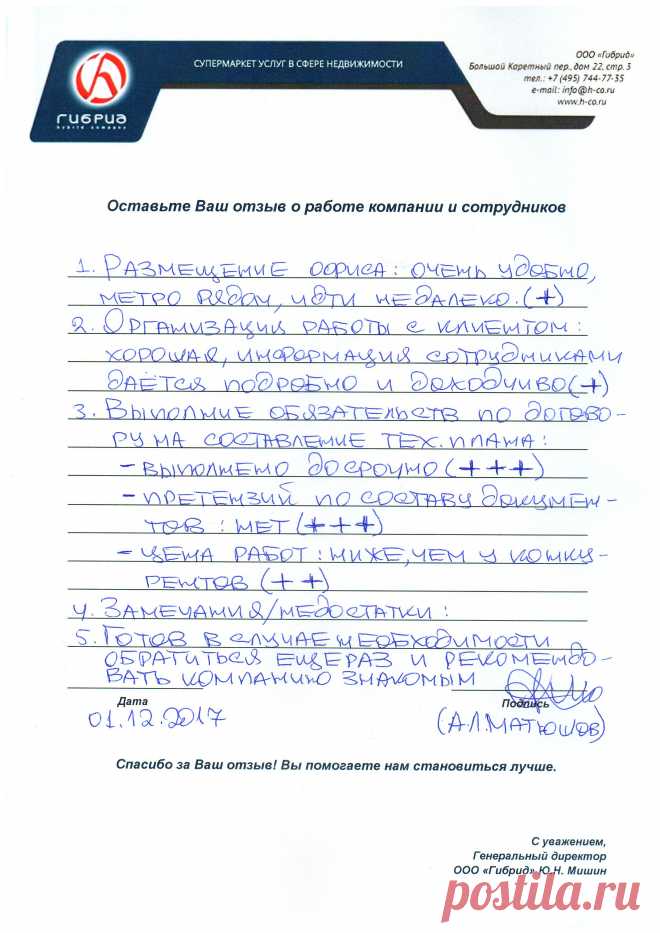 ГИБРИД
hybrid company
СУПЕРМАРКЕТ УСЛУГ В СФЕРЕ НЕДВИЖИМОСТИ
ООО «Гибрид»
Большой Каретный пер., дом 22, стр. 3
тел.: +7 (495) 744-77-35
e-mail: info@h-co.ru
www.h-co.ru
Оставьте Ваш отзыв о работе компании и сотрудников
1. Размещение офиса: очень удобно,
метро рядом, идти недалеко. (+)
2. Организация работы с клиентом:
хорошая, информация сотрудниками
даётся подробно и доходчиво (+)
3. Выполние обязательств по догово-
ру на составление тех. плана:
- выполнено досрочно (+++)
- претензий по составу докумен-
тов: нет (+++)
- цена работ: ниже, чем у конку-
рентов (++)
4. Замечания/недостатки:
5. Готов в случае необходимости
обратиться еще раз и рекомендо-
вать компанию знакомым
Дата
Подпись
01.12.2017
(А.Л. Матюшов)
Спасибо за Ваш отзыв! Вы помогаете нам становиться лучше.
С уважением,
Генеральный директор
ООО «Гибрид» Ю.Н. Мишин
postila.ru